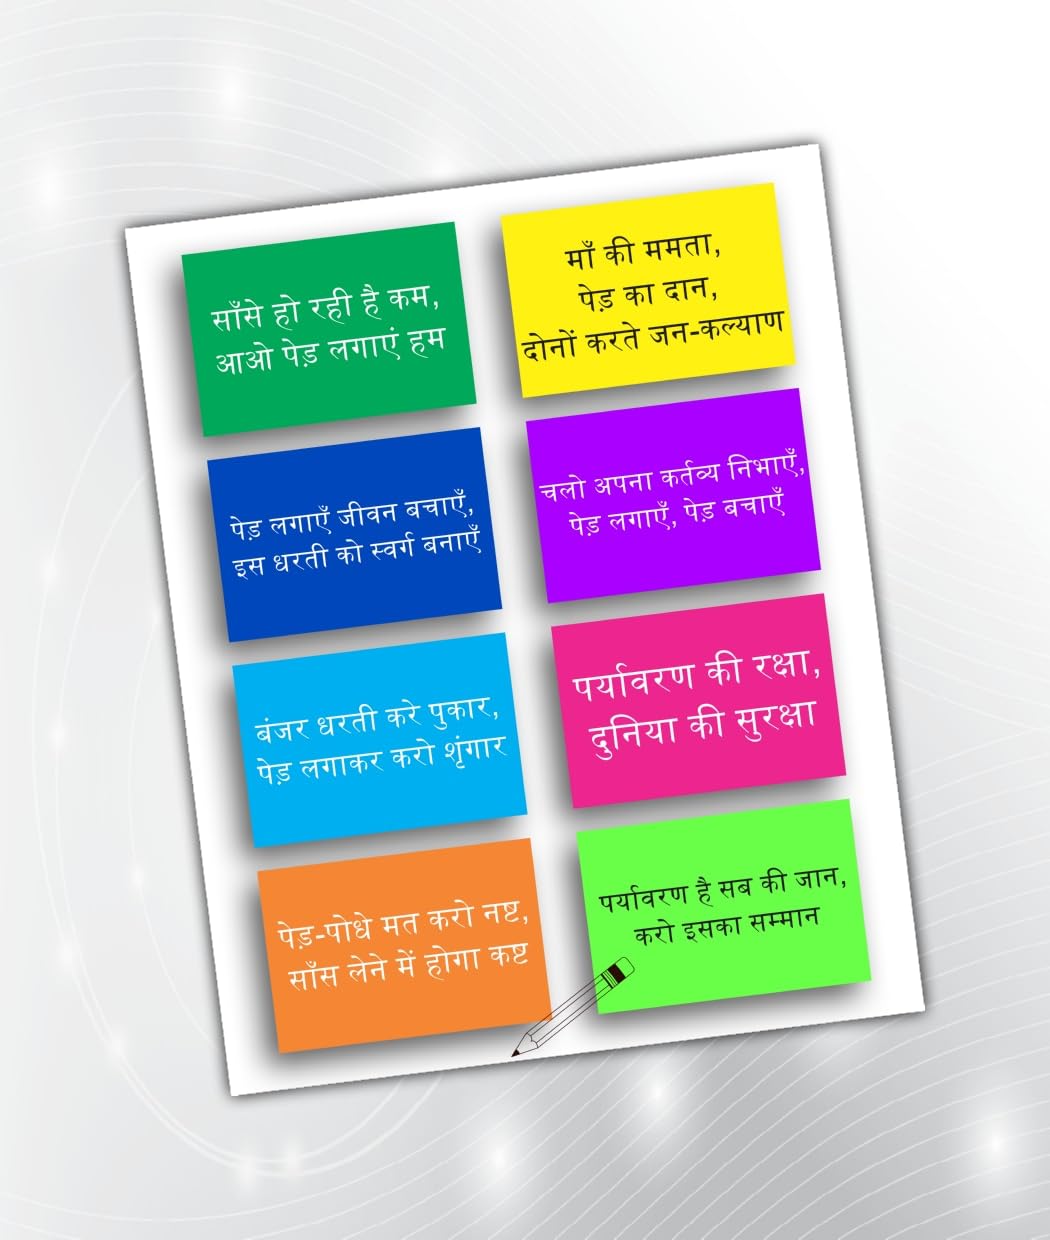 साँसे हो रही है कम,
आओ पेड़ लगाएं हम
माँ की ममता,
पेड़ का दान,
दोनों करते जन-कल्याण
पेड़ लगाएँ जीवन बचाएँ,
इस धरती को स्वर्ग बनाएँ
चलो अपना कर्तव्य निभाएँ,
पेड़ लगाएँ, पेड़ बचाएँ
बंजर धरती करे पुकार,
पेड़ लगाकर करो शृंगार
पर्यावरण की रक्षा,
दुनिया की सुरक्षा
पेड़-पोधे मत करो नष्ट,
साँस लेने में होगा कष्ट
पर्यावरण है सब की जान,
करो इसका सम्मान